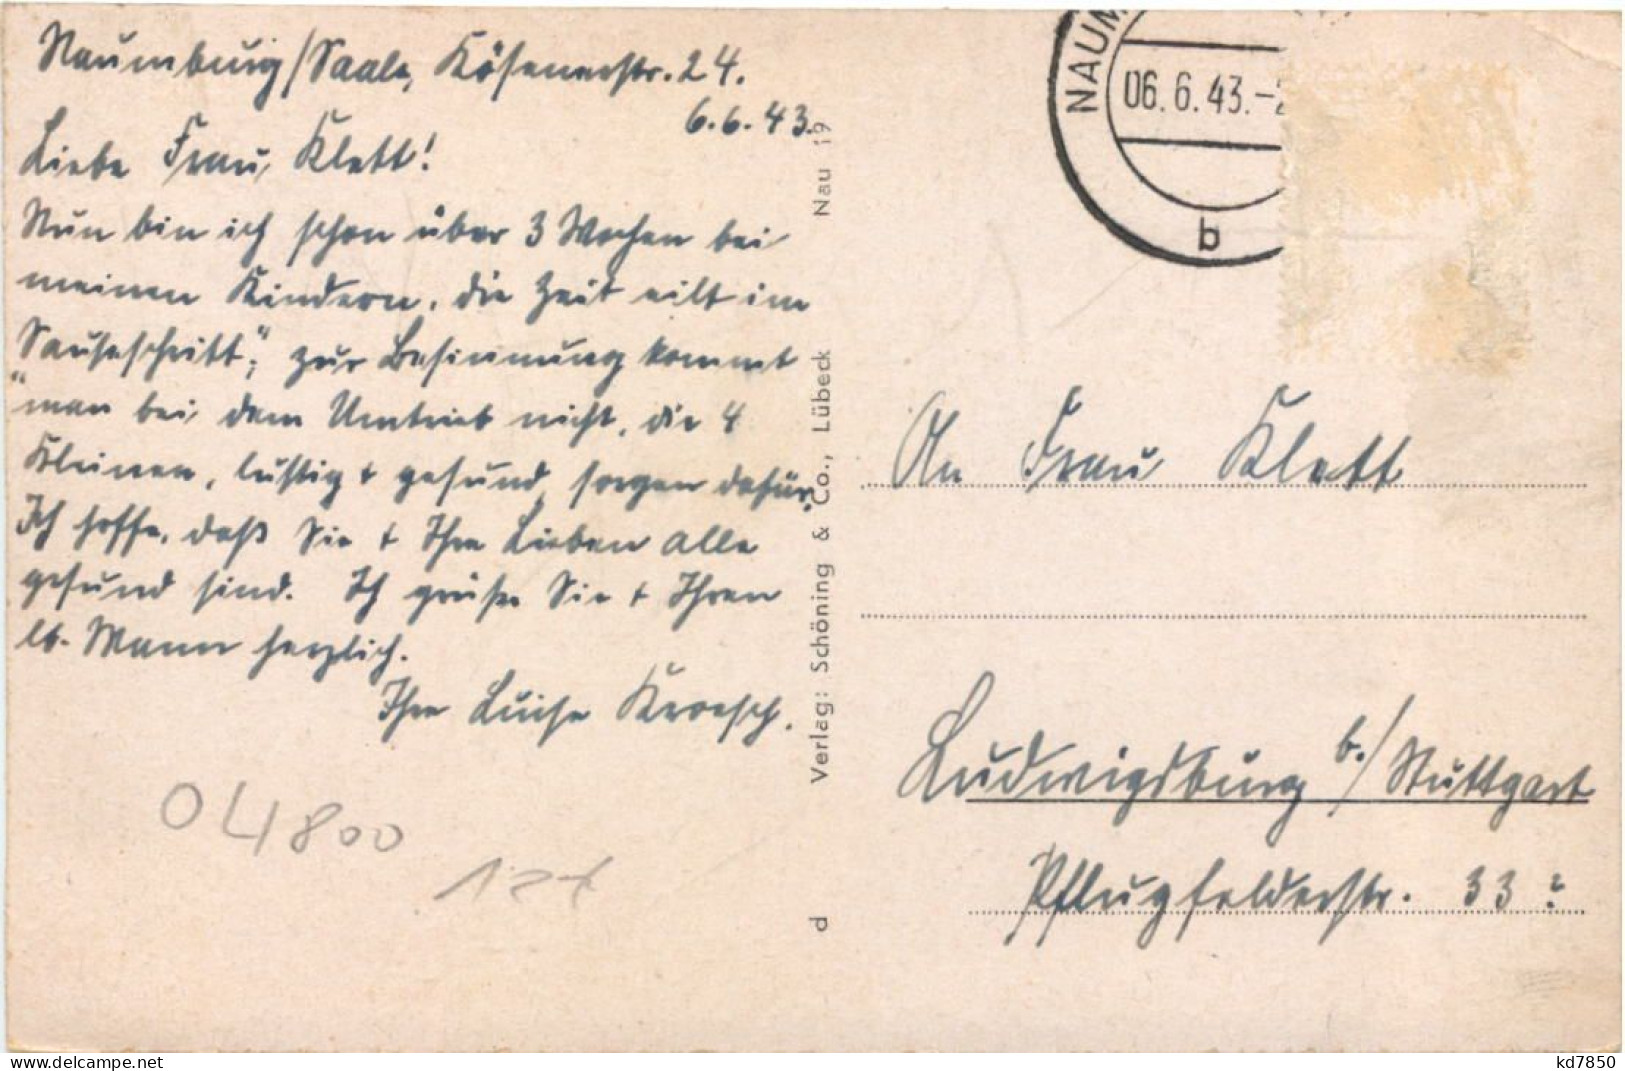 Naumburg/Saale, Kösenerstr. 24.
6.6.43.
Liebe Frau Klett!
Nun bin ich schon über 3 Wochen bei
meinen Kindern, die Zeit eilt im
Sauseschritt"; zur Besinnung kommt
"man bei dem Umtrieb nicht, die 4
Kleinen, lustig + gesund sorgen dafür.
Ich hoffe, daß Sie + Ihre Lieben alle
gesund sind. Ich grüße Sie + Ihren
lb. Mann herzlich.
Ihre Luise Kroesch.
04800
Verlag: Schöning & Co., Lübeck Nau 19
d
NAUM
06.6.43.-2
b
An Frau Klett
Ludwigsburg b./Stuttgart
Pflugfelderstr. 33?
delcampe.net
kd7850